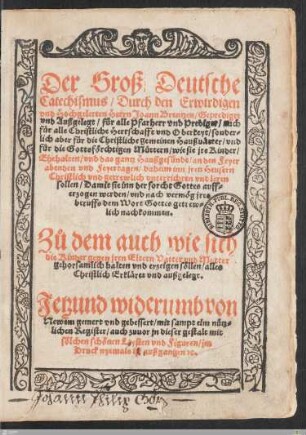 Der Groß Deutsche
Catechismus / Durch den Erwirdigen
vnd Hochgelerten Herrn Joann Brentzen / Geprediget
vnd Außgelegt / für alle Pfarherr vnd Prediger / Auch
für alle Christliche Herrschafft vnd Oberkeyt / sonder-
lich aber für die Christliche Gemeinen Haußuätter / vnd
für die Gottsförchtigen Müttern / wie sie jre Kinder /
Ehehalten / vnd das gantz Haußgesindt / an den Feyer
abenten vnd Feyertagen / daheim inn jren Heusern
Christlich vnd getrewlich vnterrichten vnd leren
sollen / Damit sie inn der forcht Gottes auff-
erzogen werden / vnd nach vermög jres
beruffs dem Wort Gottes getrew-
lich nachkommen.
Zů dem auch wie sich
die Kinder gegen jren Eltern Vatter vnd Mutter
gehorsamlich halten vnd erzeigen sollen / alles
Christlich Erkläret vnd außgelegt.
Jetzund widerumb von
Newem gemert vnd gebessert / mit sampt eim nütz-
lichen Register / auch zuuor in dieser gestalt mit
solchen schönen Leysten vnd Figuren / im
Druck nyemals ist außgangen ꝛc.
Johann Philip